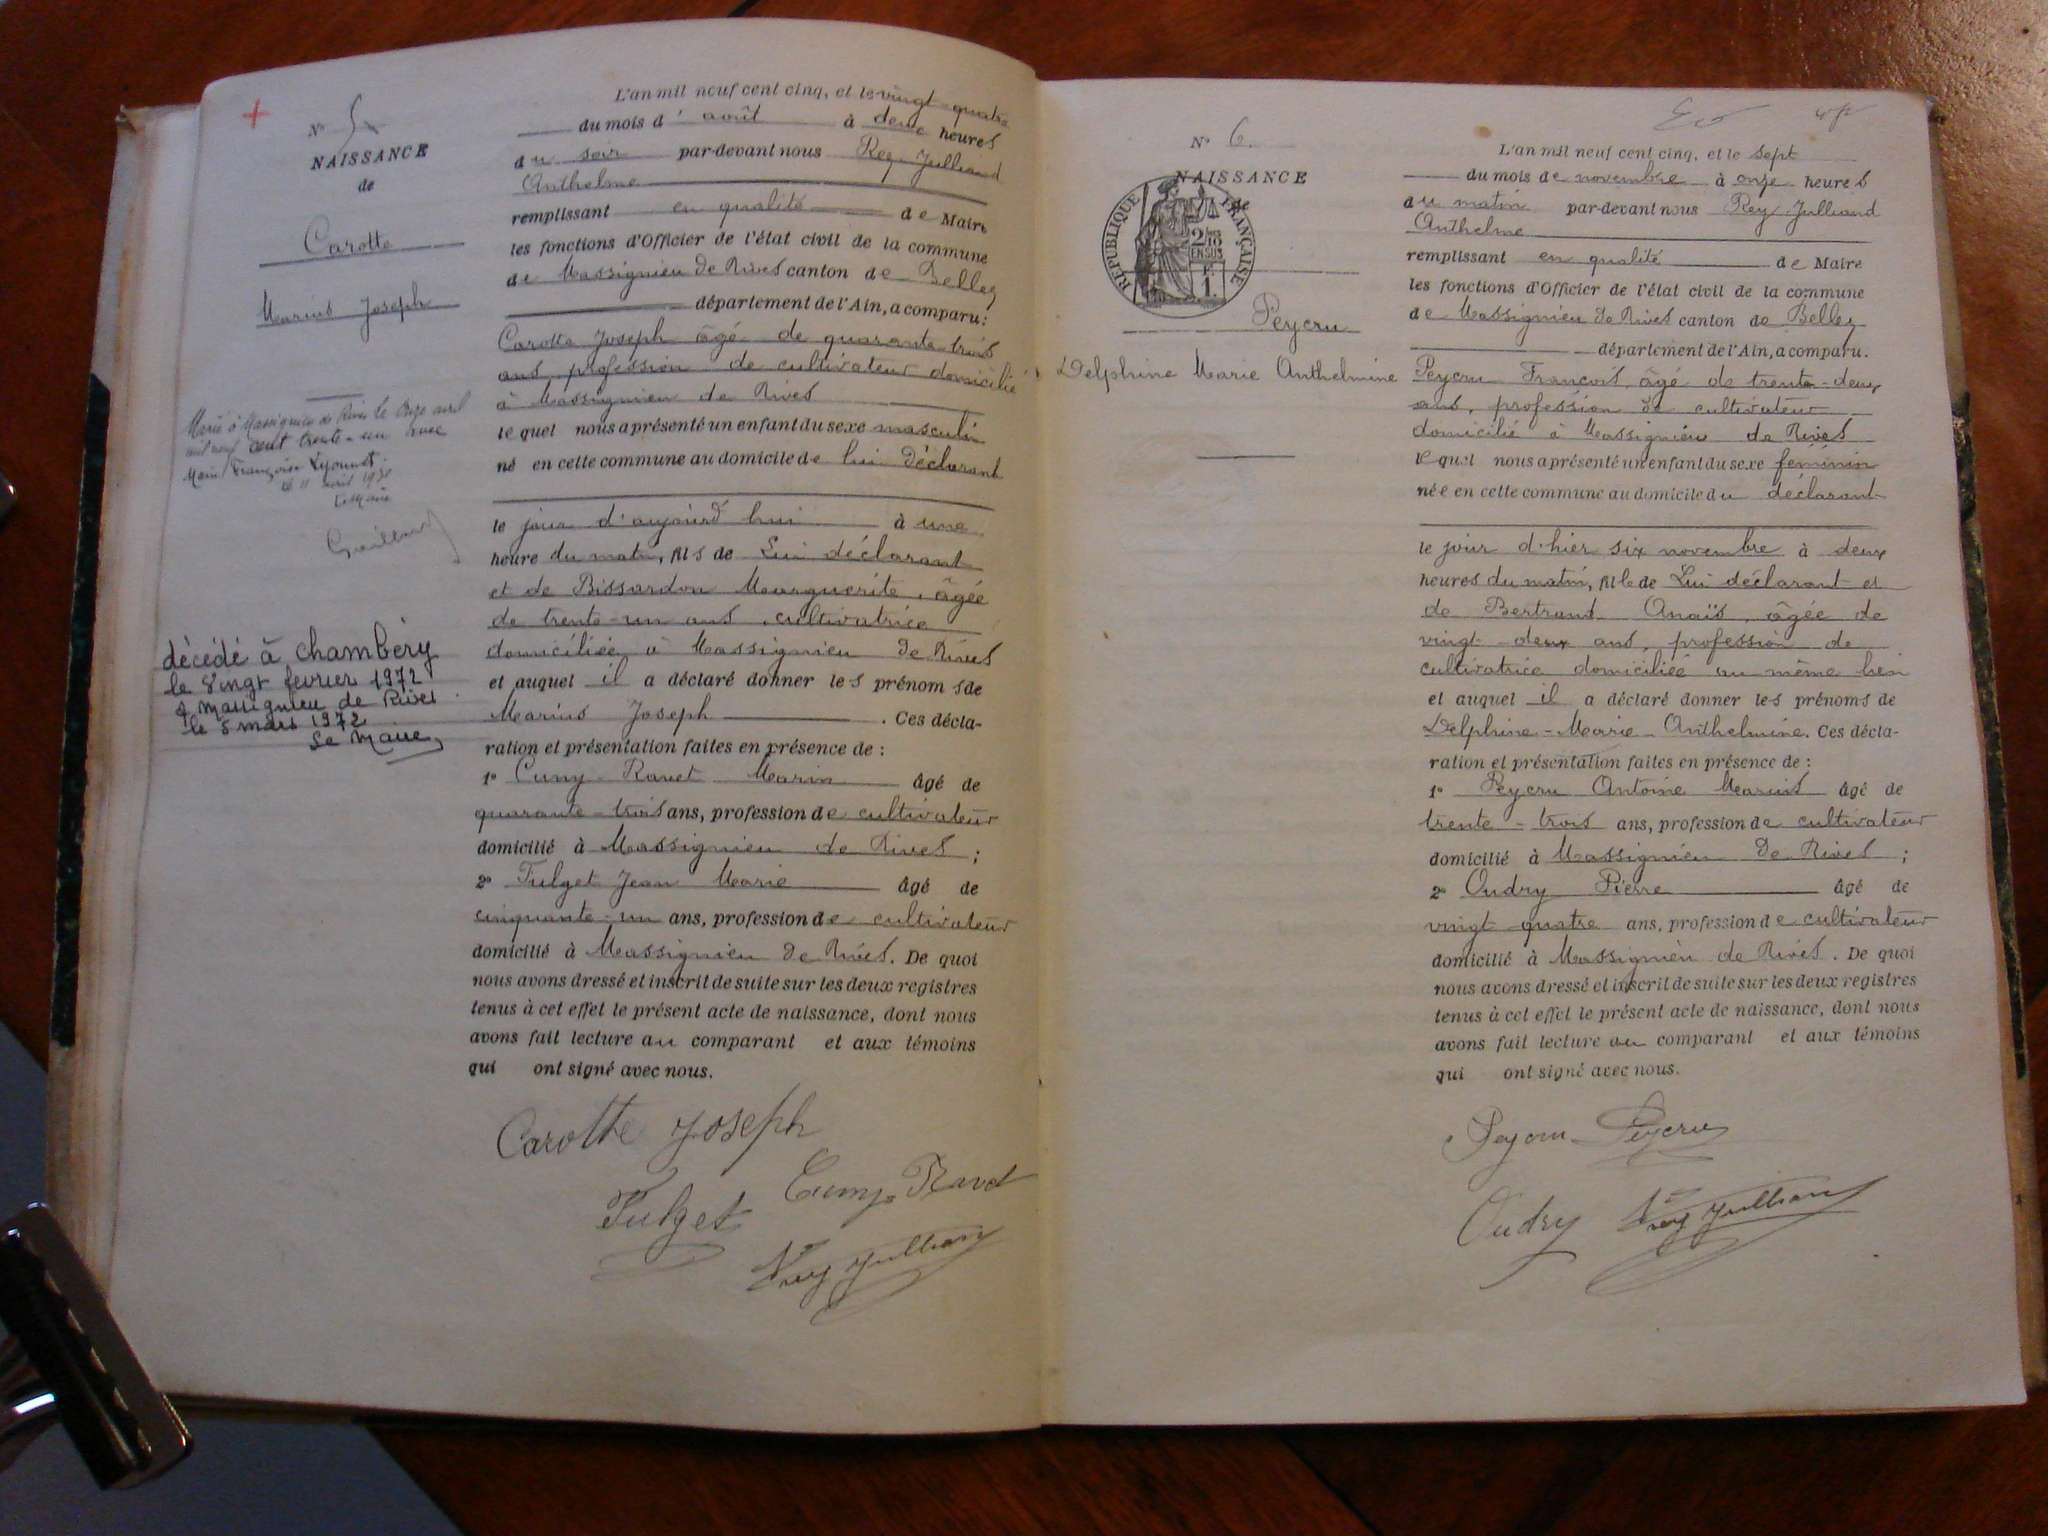 N° 5
NAISSANCE
de
Carotte
Marius Joseph
Marié à Massignieu de Rives le onze avril
mil neuf cent trente-un avec
Marie Françoise Lyonnet
le 11 avril 1931
Le Maire
décédé à Chambéry
le vingt février 1972
à Massignieu de Rives
le 5 mars 1972
Le Maire,
L'an mil neuf cent cinq, et le vingt-quatre
du mois d'août à deux heures
du soir par-devant nous Rey-Julliand
Anthelme
remplissant en qualité de Maire
les fonctions d'Officier de l'état civil de la commune
de Massignieu de Rives canton de Belley
département de l'Ain, a comparu:
Carotte Joseph âgé de quarante-trois
ans, profession de cultivateur domicilié
à Massignieu de Rives
lequel nous a présenté un enfant du sexe masculin
né en cette commune au domicile de lui déclarant
le jour d'aujourd'hui à une
heure du matin, fils de Lui déclarant
et de Bissardon Marguerite, âgée
de trente-un ans, cultivatrice
domiciliée à Massignieu de Rives
et auquel il a déclaré donner les prénoms de
Marius Joseph. Ces décla-
ration et présentation faites en présence de :
1° Cuny-Ravet Marin âgé de
quarante-trois ans, profession de cultivateur
domicilié à Massignieu de Rives ;
2° Fulget Jean Marie âgé de
cinquante-un ans, profession de cultivateur
domicilié à Massignieu de Rives. De quoi
nous avons dressé et inscrit de suite sur les deux registres
tenus à cet effet le présent acte de naissance, dont nous
avons fait lecture au comparant et aux témoins
qui ont signé avec nous.
Carotte Joseph
Cuny-Ravet
Fulget
Rey Julliand
N° 6.
NAISSANCE
de
RÉPUBLIQUE FRANÇAISE
2/10
EN SUS
Peycru
Delphine Marie Anthelmine
L'an mil neuf cent cinq, et le sept
du mois de novembre à onze heures
du matin par-devant nous Rey-Julliand
Anthelme
remplissant en qualité de Maire
les fonctions d'Officier de l'état civil de la commune
de Massignieu de Rives canton de Belley
département de l'Ain, a comparu.
Peycru François, âgé de trente-deux
ans, profession de cultivateur
domicilié à Massignieu de Rives
lequel nous a présenté un enfant du sexe féminin
née en cette commune au domicile du déclarant
le jour d'hier six novembre à deux
heures du matin, fille de Lui déclarant et
de Bertrand Anaïs, âgée de
vingt-deux ans, profession de
cultivatrice domiciliée au même lieu
et auquel il a déclaré donner les prénoms de
Delphine-Marie-Anthelmine. Ces décla-
ration et présentation faites en présence de :
1° Peycru Antoine Marius âgé de
trente-trois ans, profession de cultivateur
domicilié à Massignieu de Rives ;
2° Oudry Pierre âgé de
vingt-quatre ans, profession de cultivateur
domicilié à Massignieu de Rives. De quoi
nous avons dressé et inscrit de suite sur les deux registres
tenus à cet effet le présent acte de naissance, dont nous
avons fait lecture au comparant et aux témoins
qui ont signé avec nous.
Peycru Peycru
Oudry Rey Julliand